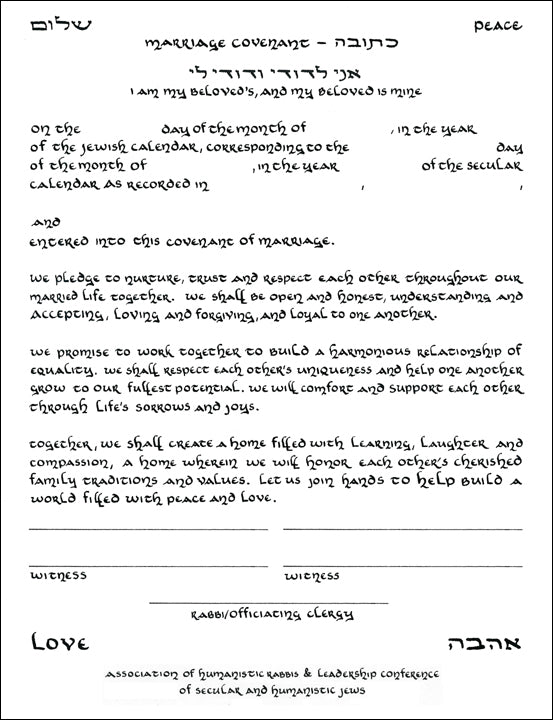 שלום PEACE
MARRIAGE COVENANT – כתובה
אני לדודי ודודי לי
I AM MY BELOVED'S, AND MY BELOVED IS MINE
ON THE DAY OF THE MONTH OF , IN THE YEAR
OF THE JEWISH CALENDAR, CORRESPONDING TO THE DAY
OF THE MONTH OF , IN THE YEAR OF THE SECULAR
CALENDAR AS RECORDED IN , ,
AND
ENTERED INTO THIS COVENANT OF MARRIAGE.
WE PLEDGE TO NURTURE, TRUST AND RESPECT EACH OTHER THROUGHOUT OUR
MARRIED LIFE TOGETHER. WE SHALL BE OPEN AND HONEST, UNDERSTANDING AND
ACCEPTING, LOVING AND FORGIVING, AND LOYAL TO ONE ANOTHER.
WE PROMISE TO WORK TOGETHER TO BUILD A HARMONIOUS RELATIONSHIP OF
EQUALITY. WE SHALL RESPECT EACH OTHER'S UNIQUENESS AND HELP ONE ANOTHER
GROW TO OUR FULLEST POTENTIAL. WE WILL COMFORT AND SUPPORT EACH OTHER
THROUGH LIFE'S SORROWS AND JOYS.
TOGETHER, WE SHALL CREATE A HOME FILLED WITH LEARNING, LAUGHTER AND
COMPASSION, A HOME WHEREIN WE WILL HONOR EACH OTHER'S CHERISHED
FAMILY TRADITIONS AND VALUES. LET US JOIN HANDS TO HELP BUILD A
WORLD FILLED WITH PEACE AND LOVE.
WITNESS WITNESS
RABBI/OFFICIATING CLERGY
LOVE אהבה
ASSOCIATION OF HUMANISTIC RABBIS & LEADERSHIP CONFERENCE
OF SECULAR AND HUMANISTIC JEWS